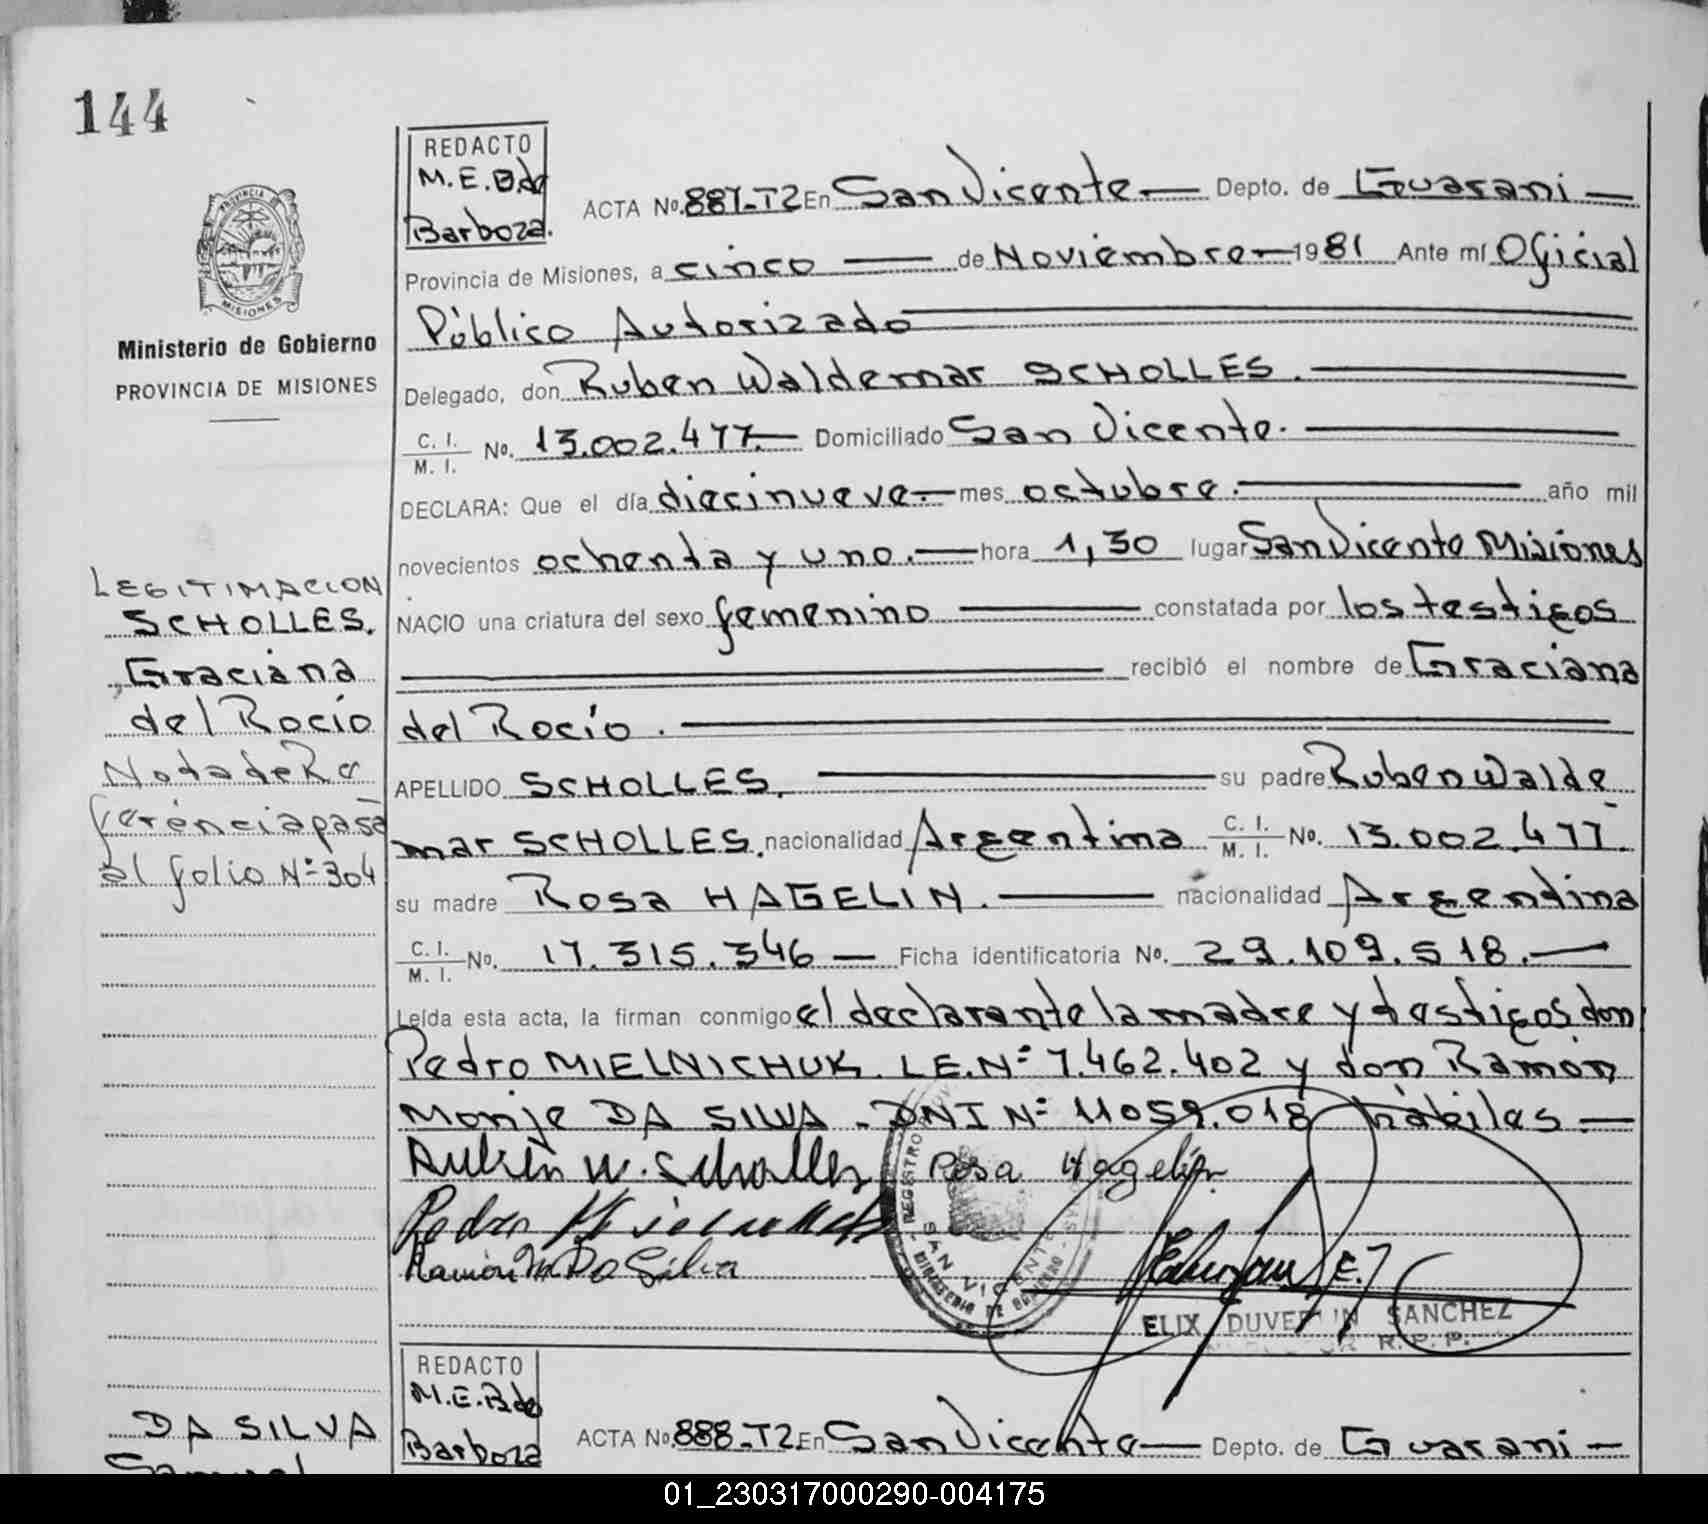 144
REDACTO
M.E.B.de
Barboza.
ACTA No. 887-T2 En San Vicente.— Depto. de Guarani —
Provincia de Misiones, a cinco — de Noviembre.— 1981 Ante mí Oficial
Público Autorizado
Delegado, don Ruben Waldemar SCHOLLES.—
C. I. / M. I. No. 13.002.477.— Domiciliado San Vicente.—
DECLARA: Que el día diecinueve.— mes octubre.— año mil
novecientos ochenta y uno.— hora 1,30 lugar San Vicente Misiones
NACIO una criatura del sexo femenino — constatada por los testigos
— recibió el nombre de Graciana
del Rocío.—
APELLIDO SCHOLLES.— su padre Ruben Walde
mar SCHOLLES. nacionalidad Argentina C. I. / M. I. No. 13.002.477.
su madre Rosa HAGELIN.— nacionalidad Argentina
C. I. / M. I. No. 17.315.346 — Ficha identificatoria No. 29.109.518.—
Leída esta acta, la firman conmigo el declarante la madre y testigos don
Pedro MIELNICHUK. L.E.Nº 7.462.402 y don Ramón
Monje DA SILVA - DNI Nº 11059.018 hábiles.—
Rubén W. Scholles Rosa Hagelin
Pedro Mielnichuk
Ramón M Da Silva
REGISTRO
SAN VICENTE
MINISTERIO DE GOBIERNO
SANCHEZ
R. P. P.
PROVINCIA DE
MISIONES
Ministerio de Gobierno
PROVINCIA DE MISIONES
LEGITIMACION
SCHOLLES.
Graciana
del Rocío
Nota de Re
ferencia pasa
al folio Nº 304
REDACTO
M.E.B de
Barboza
ACTA No. 888-T2 En San Vicente — Depto. de Guarani —
DA SILVA
Samuel
01_230317000290-004175